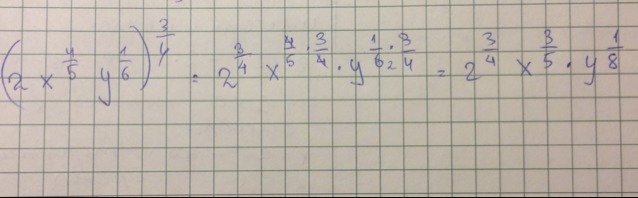 (2 x^{4/5} y^{1/6})^{3/4} = 2^{3/4} x^{4/5 · 3/4} · y^{1/6_2 · 3/4} = 2^{3/4} x^{3/5} · y^{1/8}